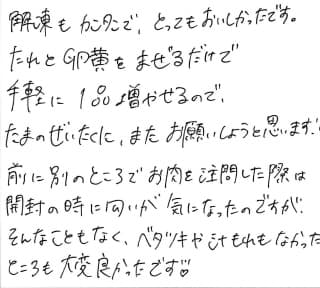 解凍もカンタンで、とってもおいしかったです。
たれと卵黄をまぜるだけで
手軽に1品増やせるので、
たまのぜいたくに、またお願いしようと思います!
前に別のところでお肉を注問した際は
開封の時に匂いが気になったのですが、
そんなこともなく、ベタツキや汁もれもなかった
ところも大変良かったです♡